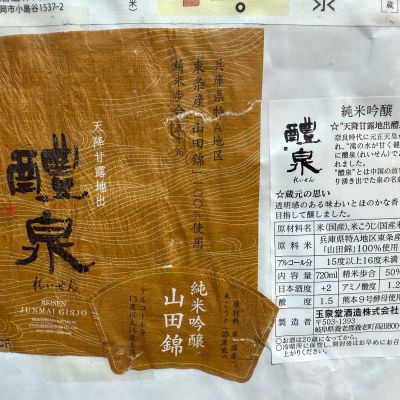 岡市小島谷1537-2
兵庫県特A地区
東条産山田錦一〇〇%使用
精米歩合五〇%
天降甘露地出
醴泉
れいせん
REISEN
JUNMAI GINJO
純米吟醸
山田錦
原材料 米(国産)
米こうじ(国産米)
アルコール分
15度以上16度未満
純米吟醸
醴泉
れいせん
☆"天降甘露地出醴
奈良時代に元正天皇が
れ、"滝の水が甘く健
に醴泉(れいせん)で
れました。
"醴泉"とは中国の故
り湧き出でた泉の名
☆蔵元の思い
透明感のある味わいとほのかな香
目指して醸しました。
原材料名 米(国産)、米こうじ(国産
原料米 兵庫県特A地区東条産
「山田錦」100%使用
アルコール分 15度以上16度未満
内容量 720ml 精米歩合 50%
日本酒度 +2 アミノ酸度 1.2
酸度 1.5 熊本9号酵母使用
製造者 玉泉堂酒造株式会社
〒503-1393
岐阜県養老郡養老町高田800-
○お酒は20歳になってから。
○冷暗所に保管し、開封後はお早めにお召
上がりください。